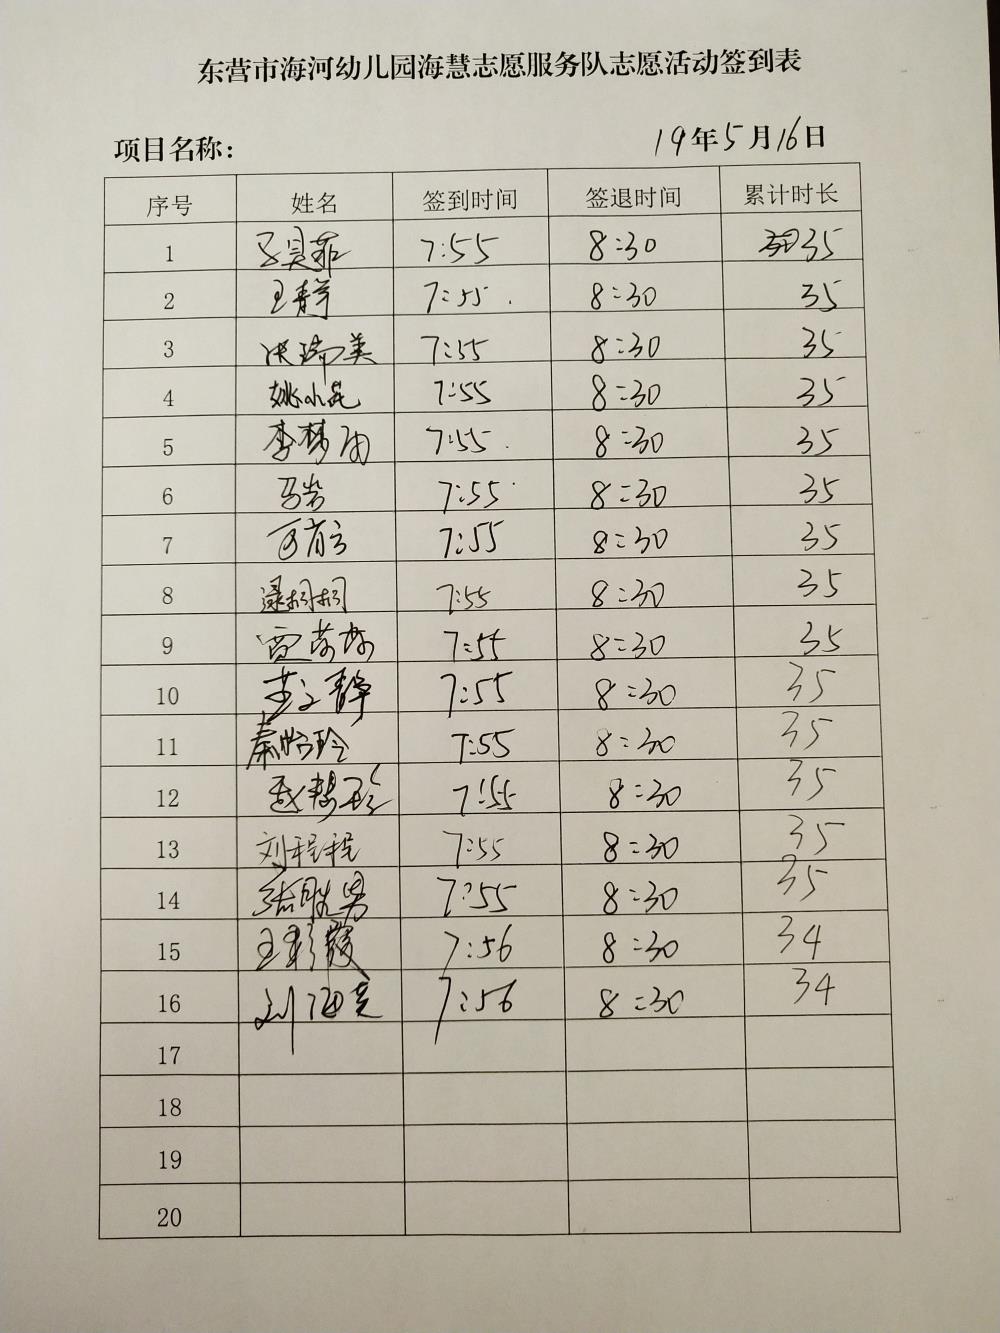 东营市海河幼儿园海慧志愿服务队志愿活动签到表
项目名称： 19年5月16日
序号 姓名 签到时间 签退时间 累计时长
1 7:55 8:30 35
2 王静 7:55 8:30 35
3 瑞美 7:55 8:30 35
4 姚 7:55 8:30 35
5 李梦 7:55 8:30 35
6 马岩 7:55 8:30 35
7 7:55 8:30 35
8 桐桐 7:55 8:30 35
9 贾 7:55 8:30 35
10 李文静 7:55 8:30 35
11 秦 玲 7:55 8:30 35
12 7:55 8:30 35
13 刘程程 7:55 8:30 35
14 张胜男 7:55 8:30 35
15 王彩霞 7:56 8:30 34
16 刘海英 7:56 8:30 34
17
18
19
20